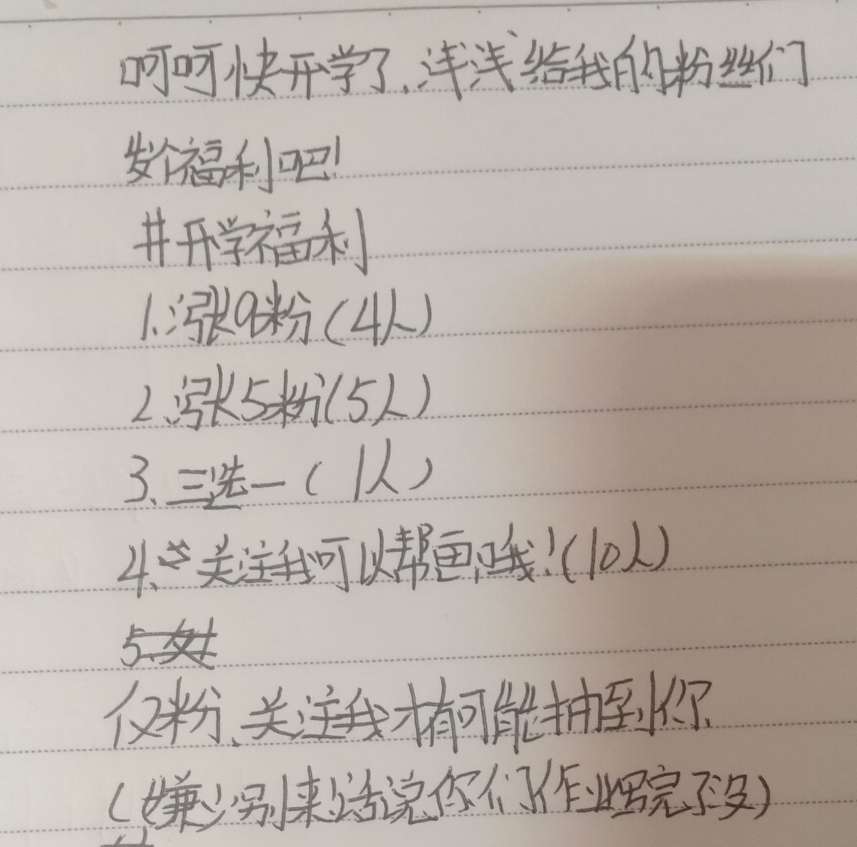 呵呵快开学了.浅浅给我的粉丝们
发个福利吧!
#开学福利
1.涨9粉(4人)
2.涨5粉(5人)
3.三选一(1人)
4.关注我可以帮画哦!(10人)
仅粉.关注我才有可能抽到你
(嫌少别来话说你们作业写完了没)